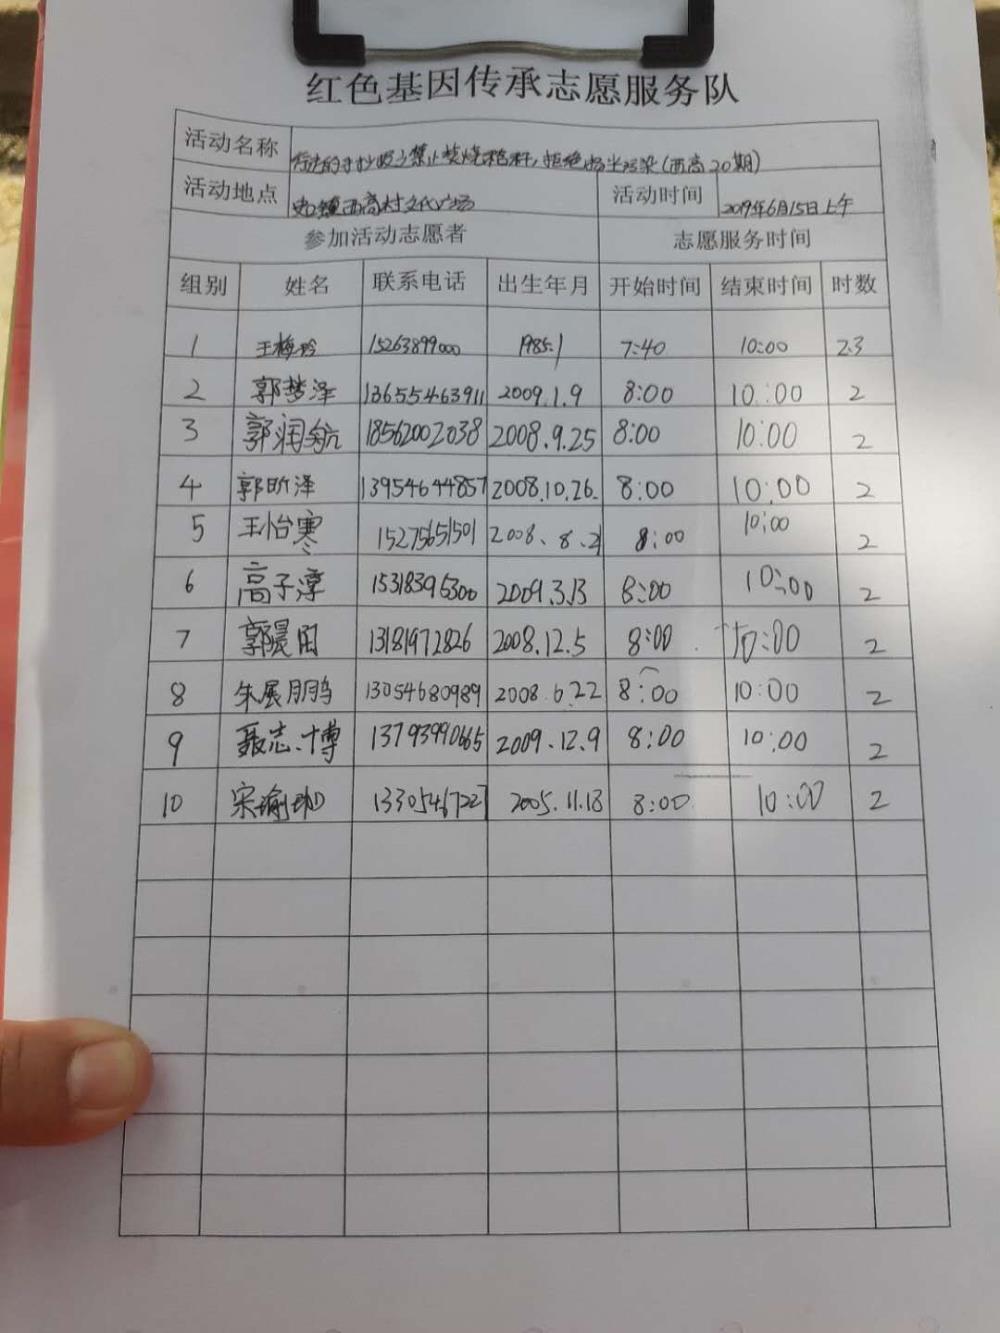 红色基因传承志愿服务队
活动名称 禁止焚烧秸秆，拒绝扬尘污染（西高20期）
活动地点 史口镇西高村文化广场 活动时间 2019年6月15日上午
参加活动志愿者 志愿服务时间
组别 姓名 联系电话 出生年月 开始时间 结束时间 时数
1 王梅玲 15263899000 1985.1 7:40 10:00 2.3
2 郭梦泽 13655463911 2009.1.9 8:00 10:00 2
3 郭润航 18562002038 2008.9.25 8:00 10:00 2
4 郭昕泽 13954644857 2008.10.26. 8:00 10:00 2
5 王怡寒 15275651501 2008.8.21 8:00 10:00 2
6 高子淳 15318395300 2009.3.13 8:00 10:00 2
7 郭晨阳 13181972826 2008.12.5 8:00 10:00 2
8 朱展鹏 13054680989 2008.6.22 8:00 10:00 2
9 聂志博 13793990665 2009.12.9 8:00 10:00 2
10 宋瑜珈 2005.11.18 8:00 10:00 2